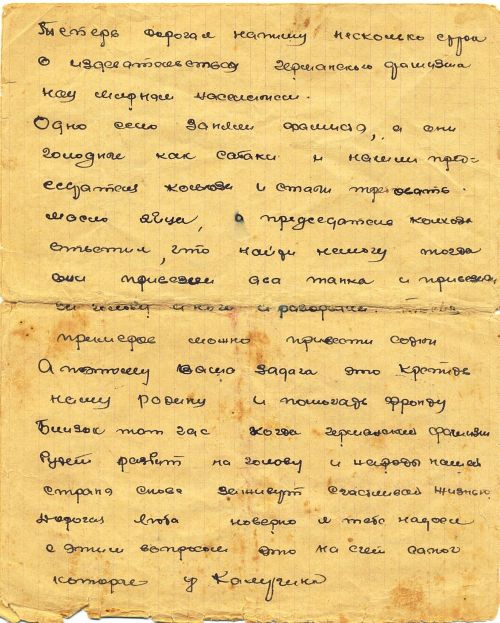 Теперь дорогая напишу несколько строк
о издевательствах германского фашизма
над мирным населением.
Одно село заняли фашисты, а они
голодные как собаки и нашли пред-
седателя колхоза и стали требовать
масло яйца, а председатель колхоза
ответил, что найти немогу тогда
они привезли два танка и привеза-
ли и разорвали.
примеров можно привести сотни
А поэтому Ваша задача это крепить
нашу родину и помогать фронту
Близок тот час когда германский фашизм
будет разбит на голову и народы нашей
страны снова заживут счастливой жизнью
Дорогая Люба наверно я тебе надоел
с этим вопросом это на счет сапог
которые у Калугина